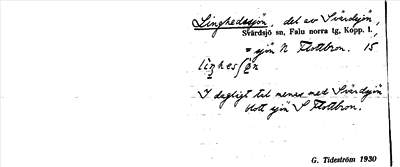 Linghedssjön, del av Svärdsjön,
Svärdsjö sn, Falu norra tg, Kopp. l.,
= sjön N Flottbron. 15
I dagligt tal menas med Svärdsjön
blott sjön S Flottbron.
G. Tideström 1930